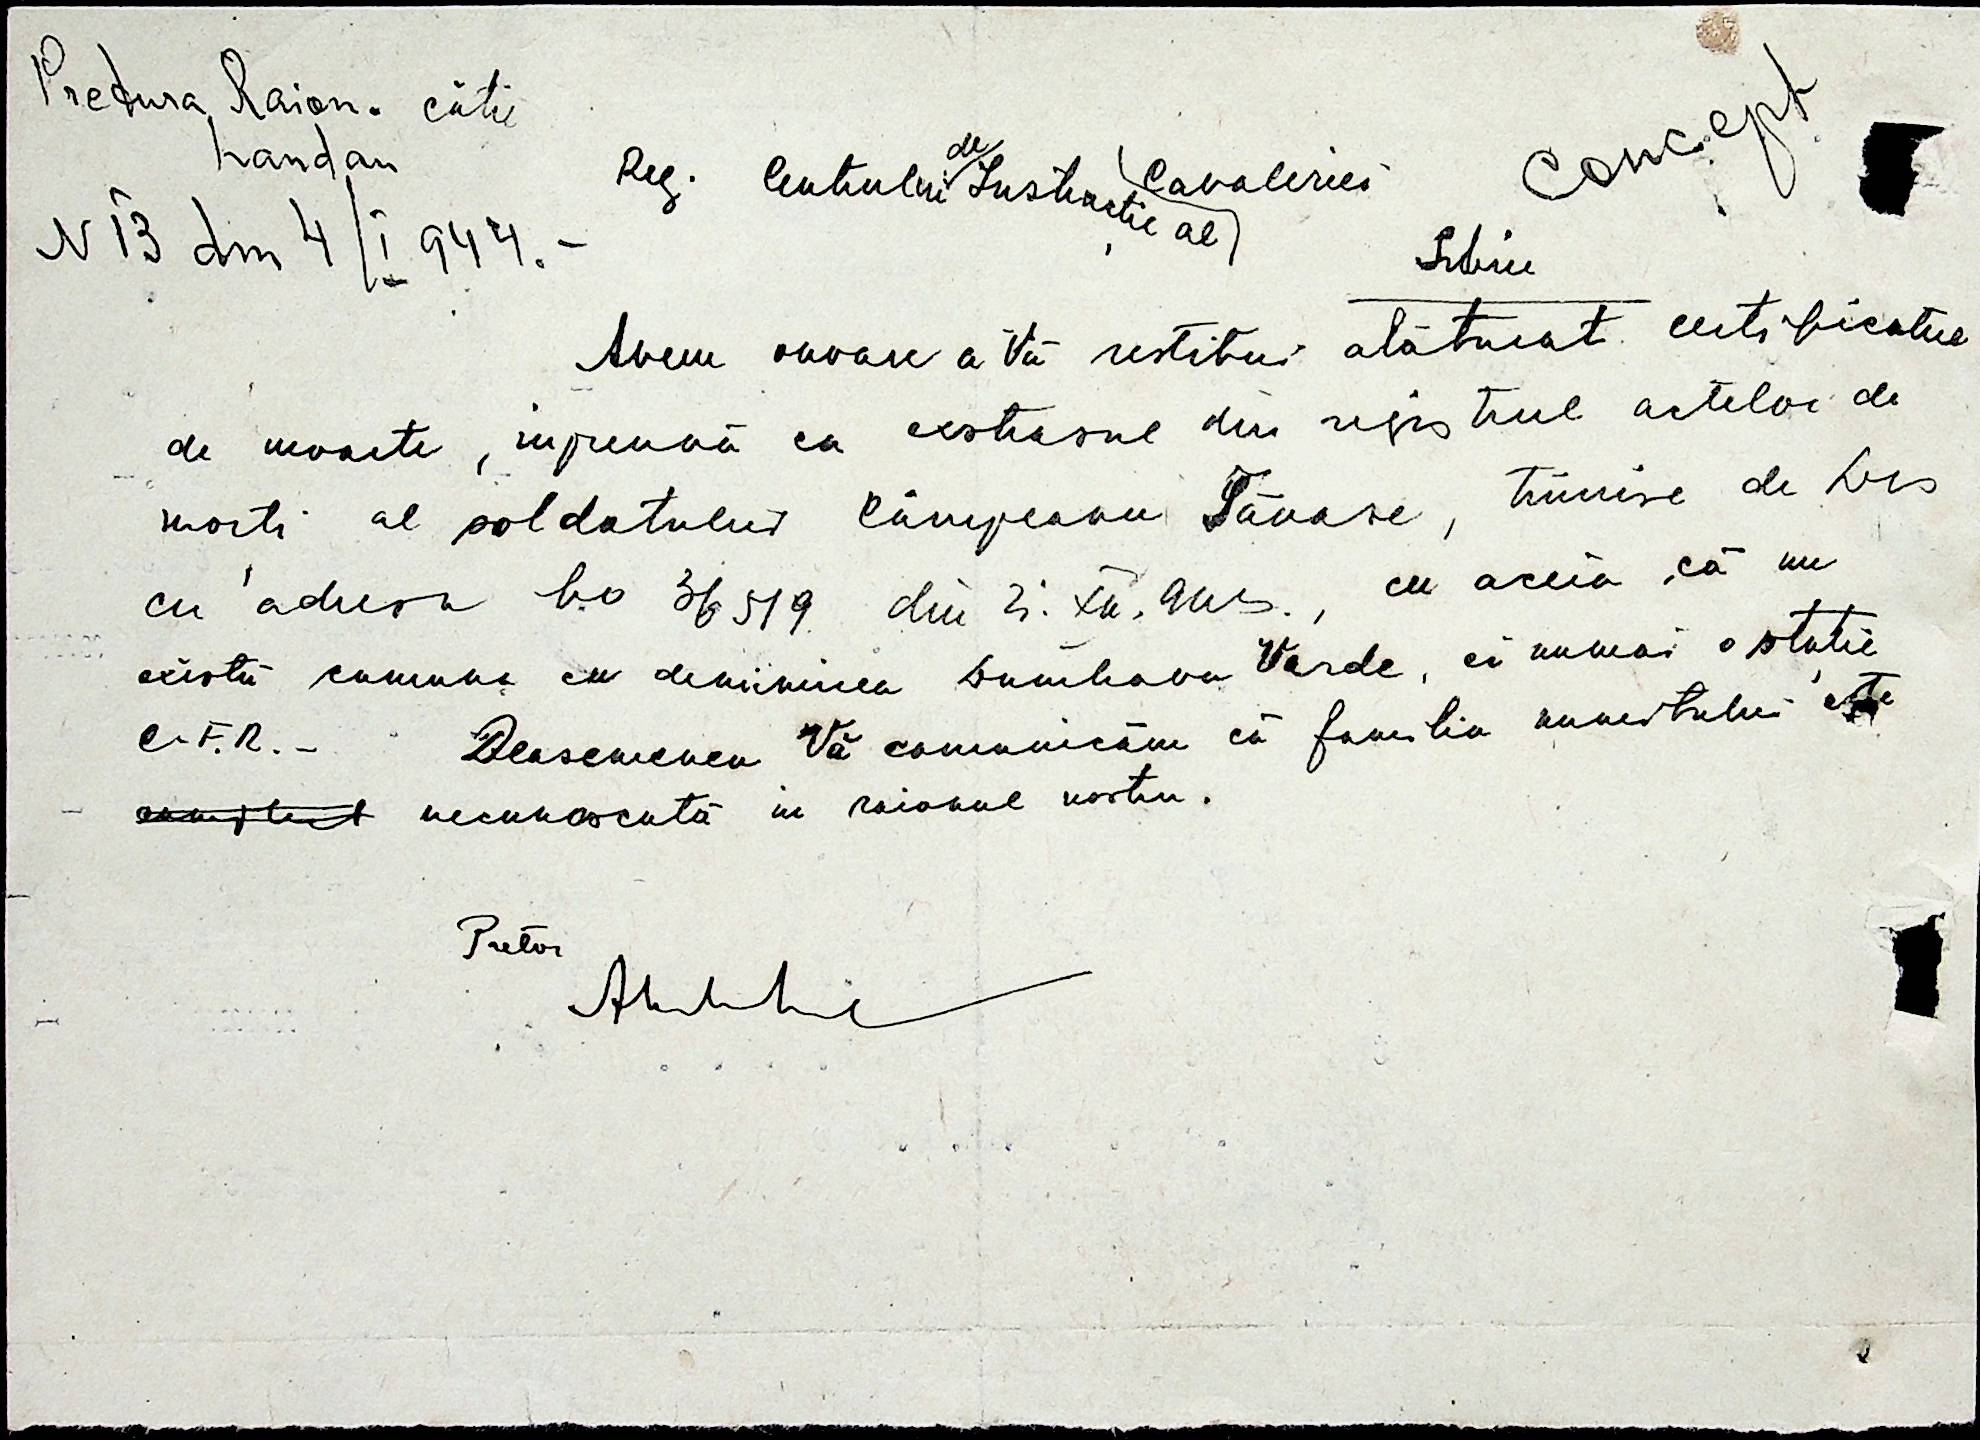 Pretura Raion. către
Landau
Concept
N 13 din 4/I 944.-
Reg. Centrului de Instrucție al Cavaleriei
Sibiu
Avem onoare a Vă restitui alăturat certificatul
de moarte, împreună cu extrasul din registrul actelor de
morți al soldatului Câmpeanu Tănase, trimise de Dvs
cu adresa No 36519 din XII. 943., cu aceia că nu
există comuna cu denumirea Dumbrava Verde, ci numai o stație
C.F.R.- Deasemenea Vă comunicăm că familia numitului este
necunoscută in raionul nostru.
Pretor